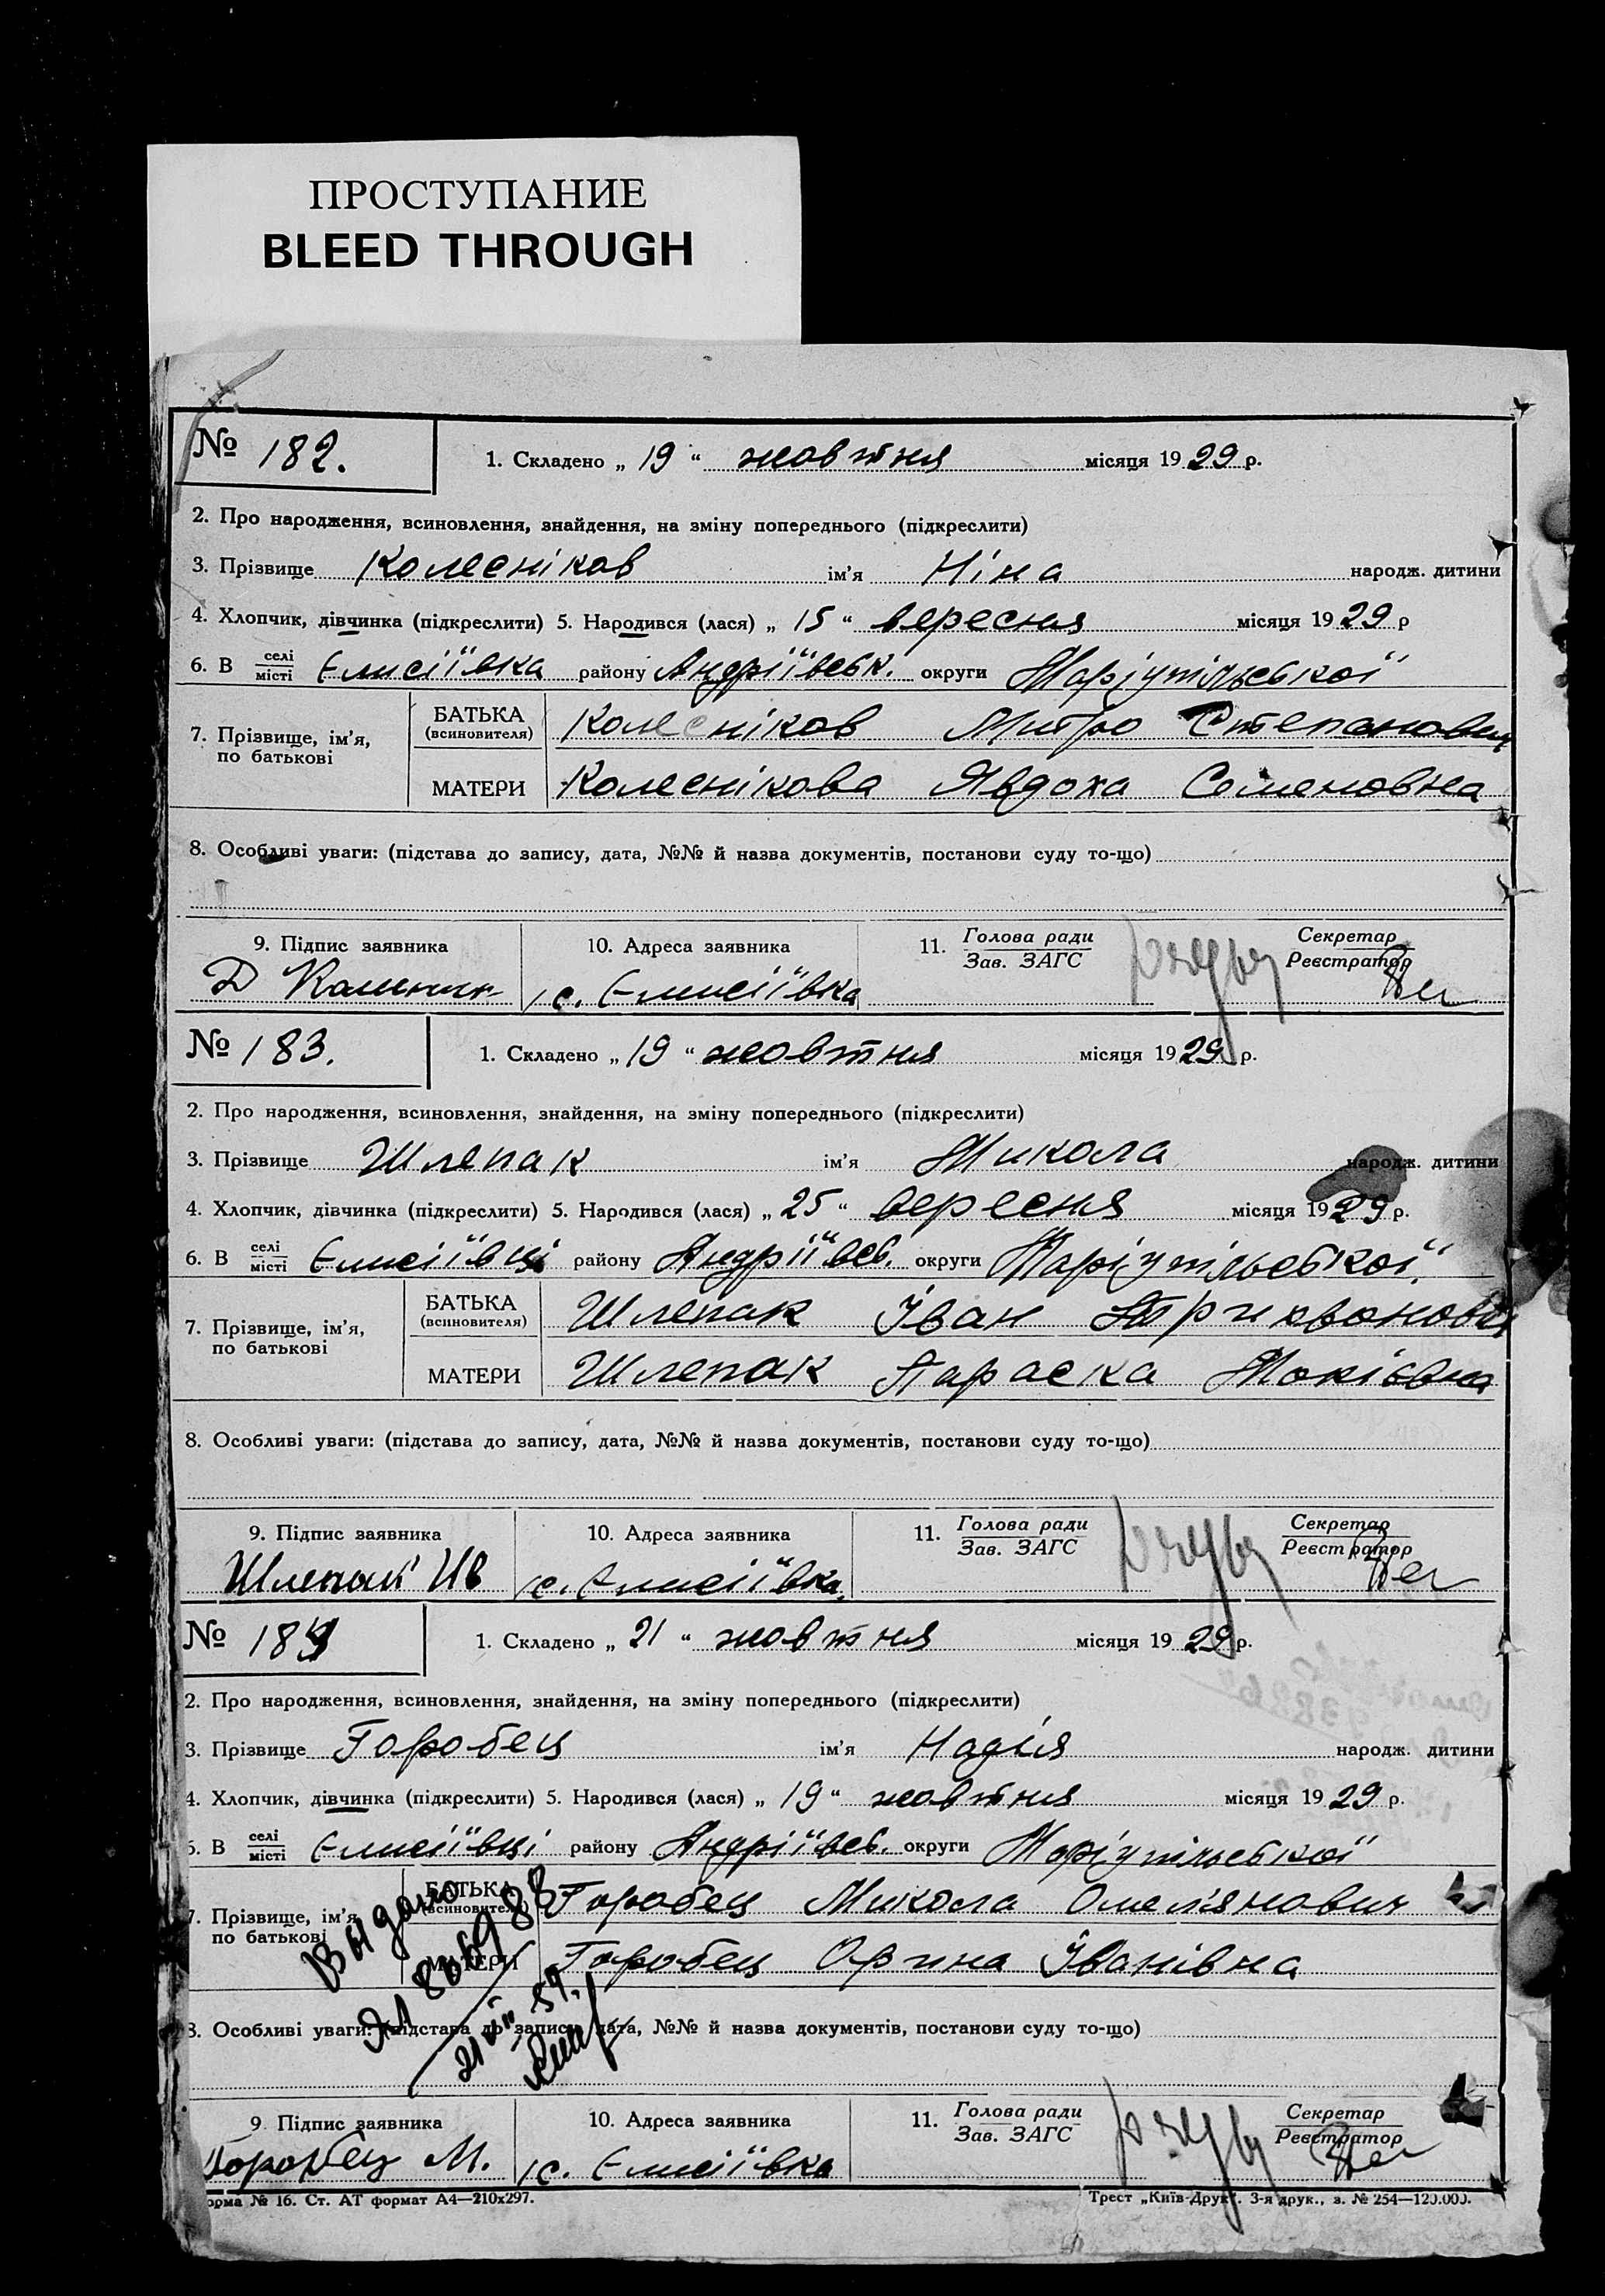 ПРОСТУПАНИЕ
BLEED THROUGH
№ 182.
1. Складено „ 19 “ жовтня місяця 1929 р.
2. Про народження, всиновлення, знайдення, на зміну попереднього (підкреслити)
3. Прізвище Колесніков ім'я Ніна народж. дитини
4. Хлопчик, дівчинка (підкреслити) 5. Народився (лася) „ 15 “ вересня місяця 1929 р
6. В селі/місті Єлисіївка району Андріївськ. округи Маріупільської
7. Прізвище, ім'я, по батькові
БАТЬКА (всиновителя) Колесніков Митро Степанович
МАТЕРИ Колеснікова Явдоха Семеновна
8. Особливі уваги: (підстава до запису, дата, №№ й назва документів, постанови суду то-що)
9. Підпис заявника 10. Адреса заявника 11. Голова ради Секретар
Зав. ЗАГС Реєстратор
Д с. Єлисіївка
№ 183.
1. Складено „ 19 “ жовтня місяця 1929 р.
2. Про народження, всиновлення, знайдення, на зміну попереднього (підкреслити)
3. Прізвище Шлепак ім'я Микола народж. дитини
4. Хлопчик, дівчинка (підкреслити) 5. Народився (лася) „ 25 “ вересня місяця 1929 р.
6. В селі/місті Єлисіївці району Андріївсь. округи Маріупільської
7. Прізвище, ім'я, по батькові
БАТЬКА (всиновителя) Шлепак Іван Трихвонович
МАТЕРИ Шлепак Параска Мокієвна
8. Особливі уваги: (підстава до запису, дата, №№ й назва документів, постанови суду то-що)
9. Підпис заявника 10. Адреса заявника 11. Голова ради Секретар
Зав. ЗАГС Реєстратор
Шлепак Ив с. Єлисіївка.
№ 184
1. Складено „ 21 “ жовтня місяця 1929 р.
2. Про народження, всиновлення, знайдення, на зміну попереднього (підкреслити)
3. Прізвище Горобец ім'я Надія народж. дитини
4. Хлопчик, дівчинка (підкреслити) 5. Народився (лася) „ 19 “ жовтня місяця 1929 р.
6. В селі/місті Єлисіївці району Андріївсь. округи Маріупільської
7. Прізвище, ім'я, по батькові
БАТЬКА (всиновителя) Горобец Микола Омелянович
МАТЕРИ Горобец Орина Іванівна
Выдано
8. Особливі уваги: (підстава до запису, дата, №№ й назва документів, постанови суду то-що)
9 Підпис заявника 10. Адреса заявника 11. Голова ради Секретар
Зав. ЗАГС Реєстратор
Горобец М. с. Єлисіївка
орма № 16. Ст. АТ формат А4—210х297. Трест „Київ-Друк“. 3-я друк., з. № 254—120.000.